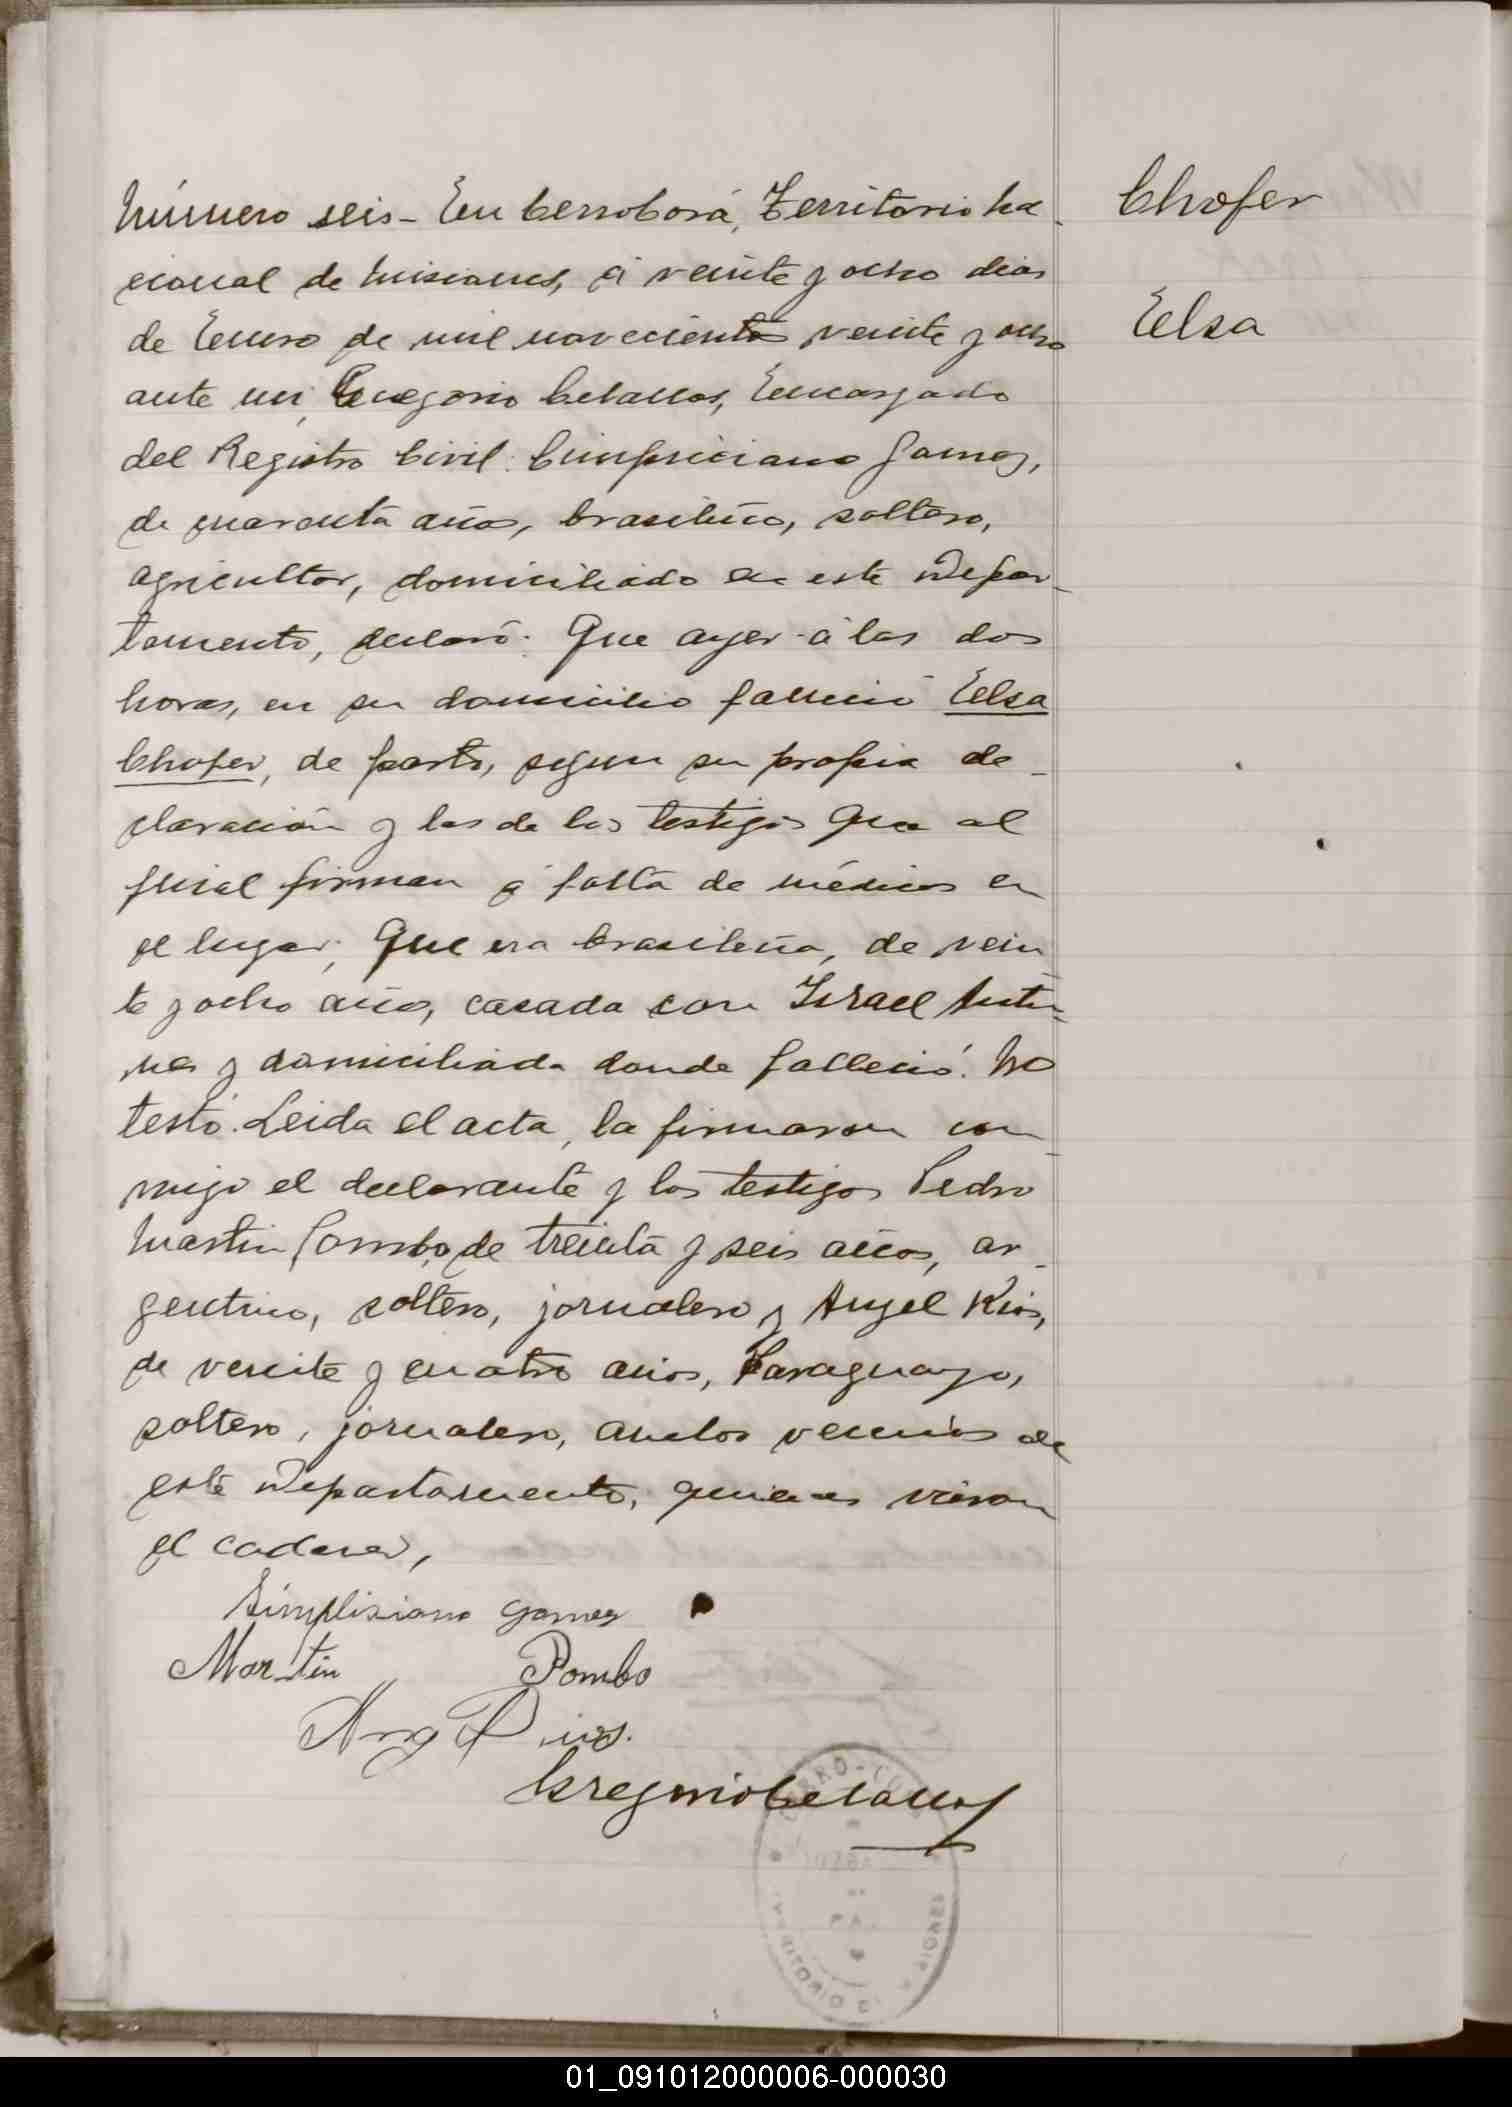 Chofer
Elsa
Número seis - En Cerrocorá, Territorio Na-
cional de Misiones, á veinte y ocho dias
de Enero de mil novecientos veinte y ocho
ante mi, Gregorio Ceballos, Encargado
del Registro Civil: Cimpriciano Gomez,
de cuarenta años, brasileño, soltero,
agricultor, domiciliado en este Depar-
tamento, declaró: Que ayer á las dos
horas, en su domicilio falleció Elsa
Chofer, de parto, segun su propia de-
claración y las de los testigos que al
final firman á falta de médicos en
el lugar; Que era brasileña, de vein
te y ocho años, casada con Israel Antu-
nes y domiciliada donde falleció. No
testó. Leida el acta, la firmaron con-
migo el declarante y los testigos Pedro
Martin Pombo, de treinta y seis años, ar-
gentino, soltero, jornalero y Angel Rios,
de veinte y cuatro años, Paraguayo,
soltero, jornalero, ambos vecinos de
este Departamento, quienes vieron
el cadaver,
Simplisiano Gomez
Martin Pombo
Ang Rios.
Gregorio Ceballos
01_091012000006-000030